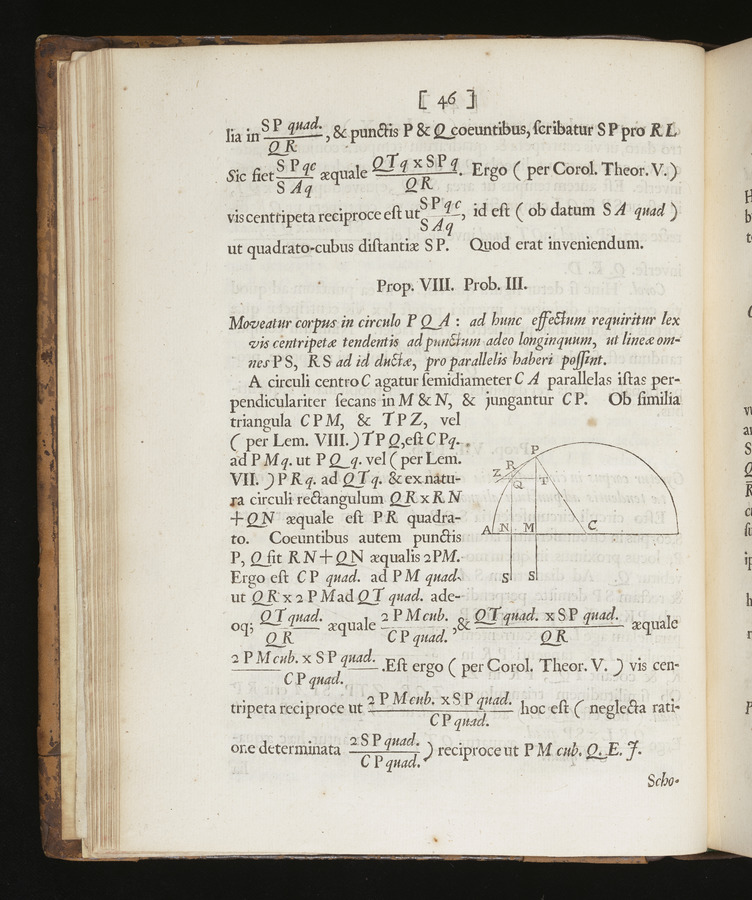 [ 46 ]
lia in SP quad./QR, & punctis P & Q coeuntibus, ſcribatur SP pro RL
Sic fiet SPqc/SAq æquale QTq x SPq/QR. Ergo ( per Corol. Theor. V. )
vis centripeta reciproce eſt ut SPqc/SAq, id eſt ( ob datum SA quad )
ut quadrato-cubus diſtantiæ SP. Quod erat inveniendum.
Prop. VIII. Prob. III.
Moveatur corpus in circulo PQA : ad hunc effectum requiritur lex
vis centripetæ tendentis ad punctum adeo longinquum, ut lineæ om-
nes PS, RS ad id ductæ, pro parallelis haberi poſſint.
A circuli centro C agatur ſemidiameter CA parallelas iſtas per-
pendiculariter ſecans in M & N, & jungantur CP. Ob ſimilia
triangula CPM, & TPZ, vel
( per Lem. VIII. ) TPQ, eſt CPq.
ad PMq. ut PQq. vel ( per Lem.
VII. ) PRq. ad QTq. & ex natu-
ra circuli rectangulum QR x RN
+ QN æquale eſt PR quadra-
to. Coeuntibus autem punctis
P, Q fit RN + QN æqualis 2PM.
Ergo eſt CP quad. ad PM quad.
ut QR x 2PM ad QT quad. ade-
oq; QT quad./QR æquale 2PM cub./CP quad., & QT quad. x SP quad./QR æquale
2PM cub. x SP quad./CP quad. . Eſt ergo ( per Corol. Theor. V. ) vis cen-
tripeta reciproce ut 2PM cub. x SP quad./CP quad. hoc eſt ( neglecta rati-
one determinata 2SP quad./CP quad. ) reciproce ut PM cub. Q. E. J.
Scho-
P
R
Z
Q
T
A
N
M
C
S
S